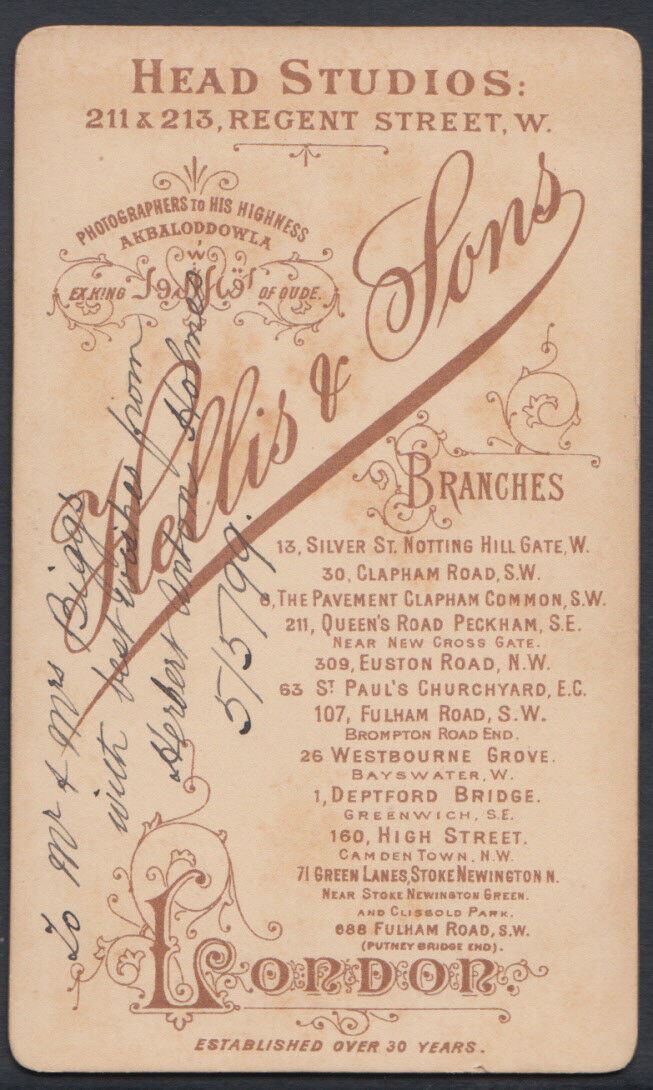 HEAD STUDIOS:
211 & 213, REGENT STREET, W.
PHOTOGRAPHERS TO HIS HIGHNESS
AKBALODDOWLA
EX KING OF OUDE.
Hellis & Sons
BRANCHES
13, SILVER ST. NOTTING HILL GATE, W.
30, CLAPHAM ROAD, S.W.
6, THE PAVEMENT CLAPHAM COMMON, S.W.
211, QUEEN'S ROAD PECKHAM, S.E.
NEAR NEW CROSS GATE.
309, EUSTON ROAD, N.W.
63 ST PAUL'S CHURCHYARD, E.C.
107, FULHAM ROAD, S.W.
BROMPTON ROAD END.
26 WESTBOURNE GROVE.
BAYSWATER, W.
1, DEPTFORD BRIDGE.
GREENWICH, S.E.
160, HIGH STREET.
CAMDEN TOWN, N.W.
71 GREEN LANES, STOKE NEWINGTON N.
NEAR STOKE NEWINGTON GREEN.
AND CLISSOLD PARK.
688 FULHAM ROAD, S.W.
(PUTNEY BRIDGE END).
LONDON.
ESTABLISHED OVER 30 YEARS.
To Mr & Mrs Biggs
with best wishes from
Herbert Antony Holmes
5/5/99.